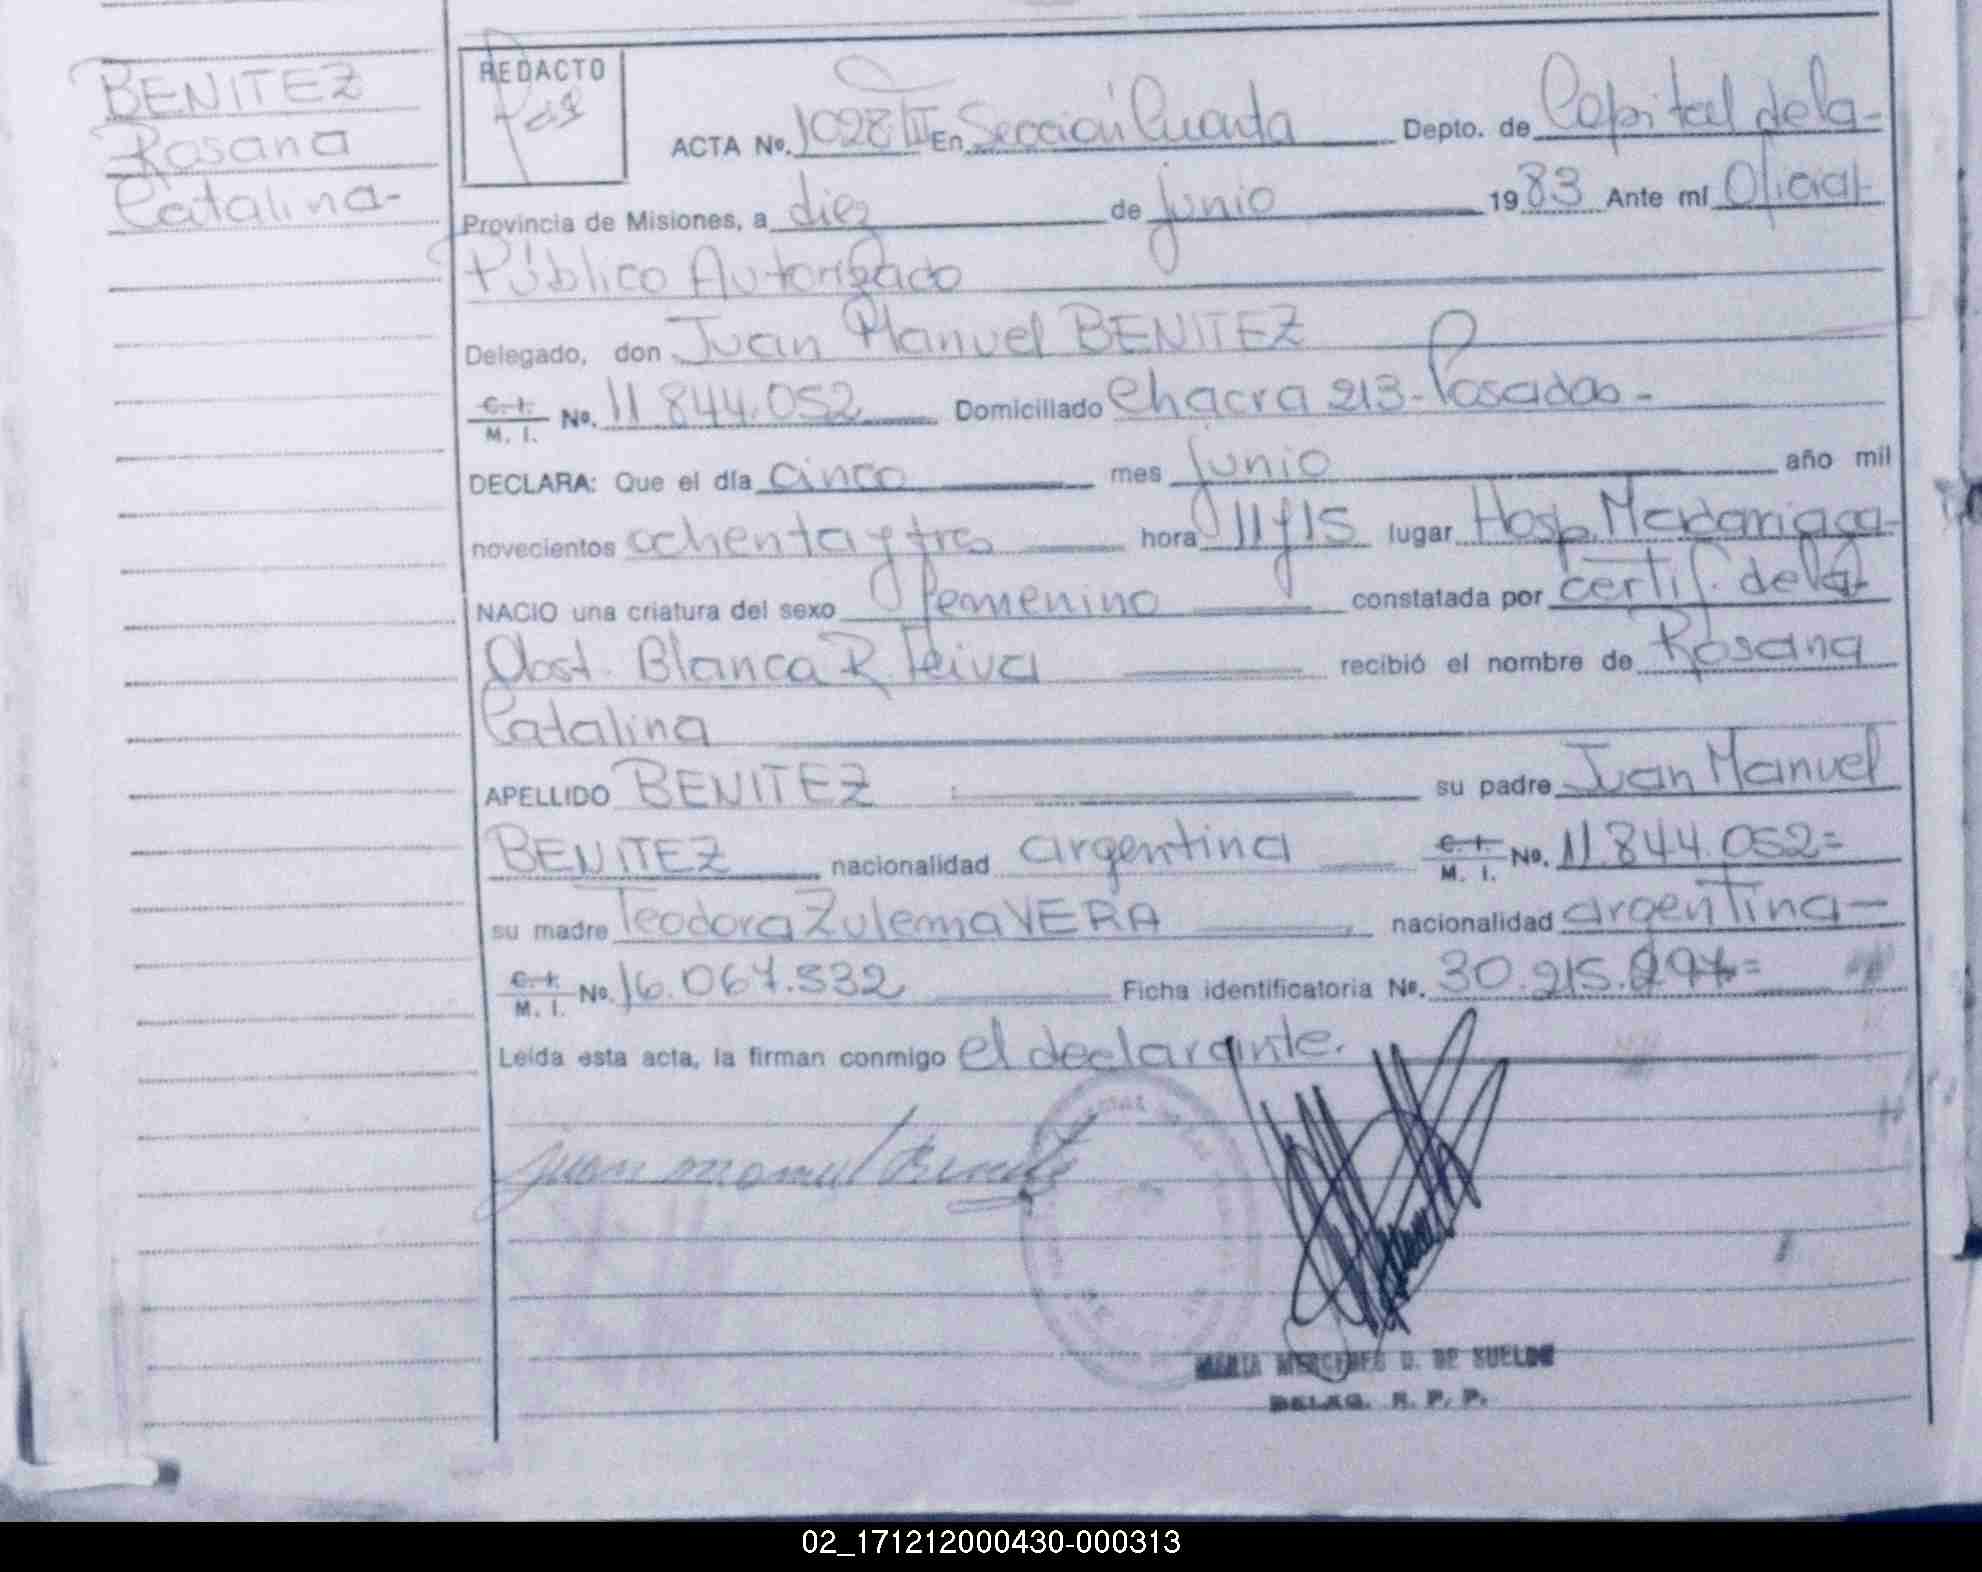 BENITEZ
Rosana
Catalina-
REDACTO
ACTA No. 1028 III En Sección Cuarta Depto. de Capital de la-
Provincia de Misiones, a diez de junio 1983 Ante mí Oficial
Público Autorizado
Delegado, don Juan Manuel BENITEZ
C. I. M. I. No. 11.844.052 Domiciliado Chacra 213-Posadas-
DECLARA: Que el día cinco mes junio año mil
novecientos ochenta y tres hora 11 y 15 lugar Hosp. Madariaga-
NACIO una criatura del sexo femenino constatada por certif. de la-
Obst. Blanca R. Leiva recibió el nombre de Rosana
Catalina
APELLIDO BENITEZ su padre Juan Manuel
BENITEZ nacionalidad argentina C. I. M. I. No. 11.844.052=
su madre Teodora Zulema VERA nacionalidad argentina-
C. I. M. I. No. 16.067.532 Ficha identificatoria No. 30.215.
Leída esta acta, la firman conmigo el declarante.
Juan Manuel Benitez
MARIA MERCEDES D. DE SUELDO
DELEG. R. P. P.
02_171212000430-000313